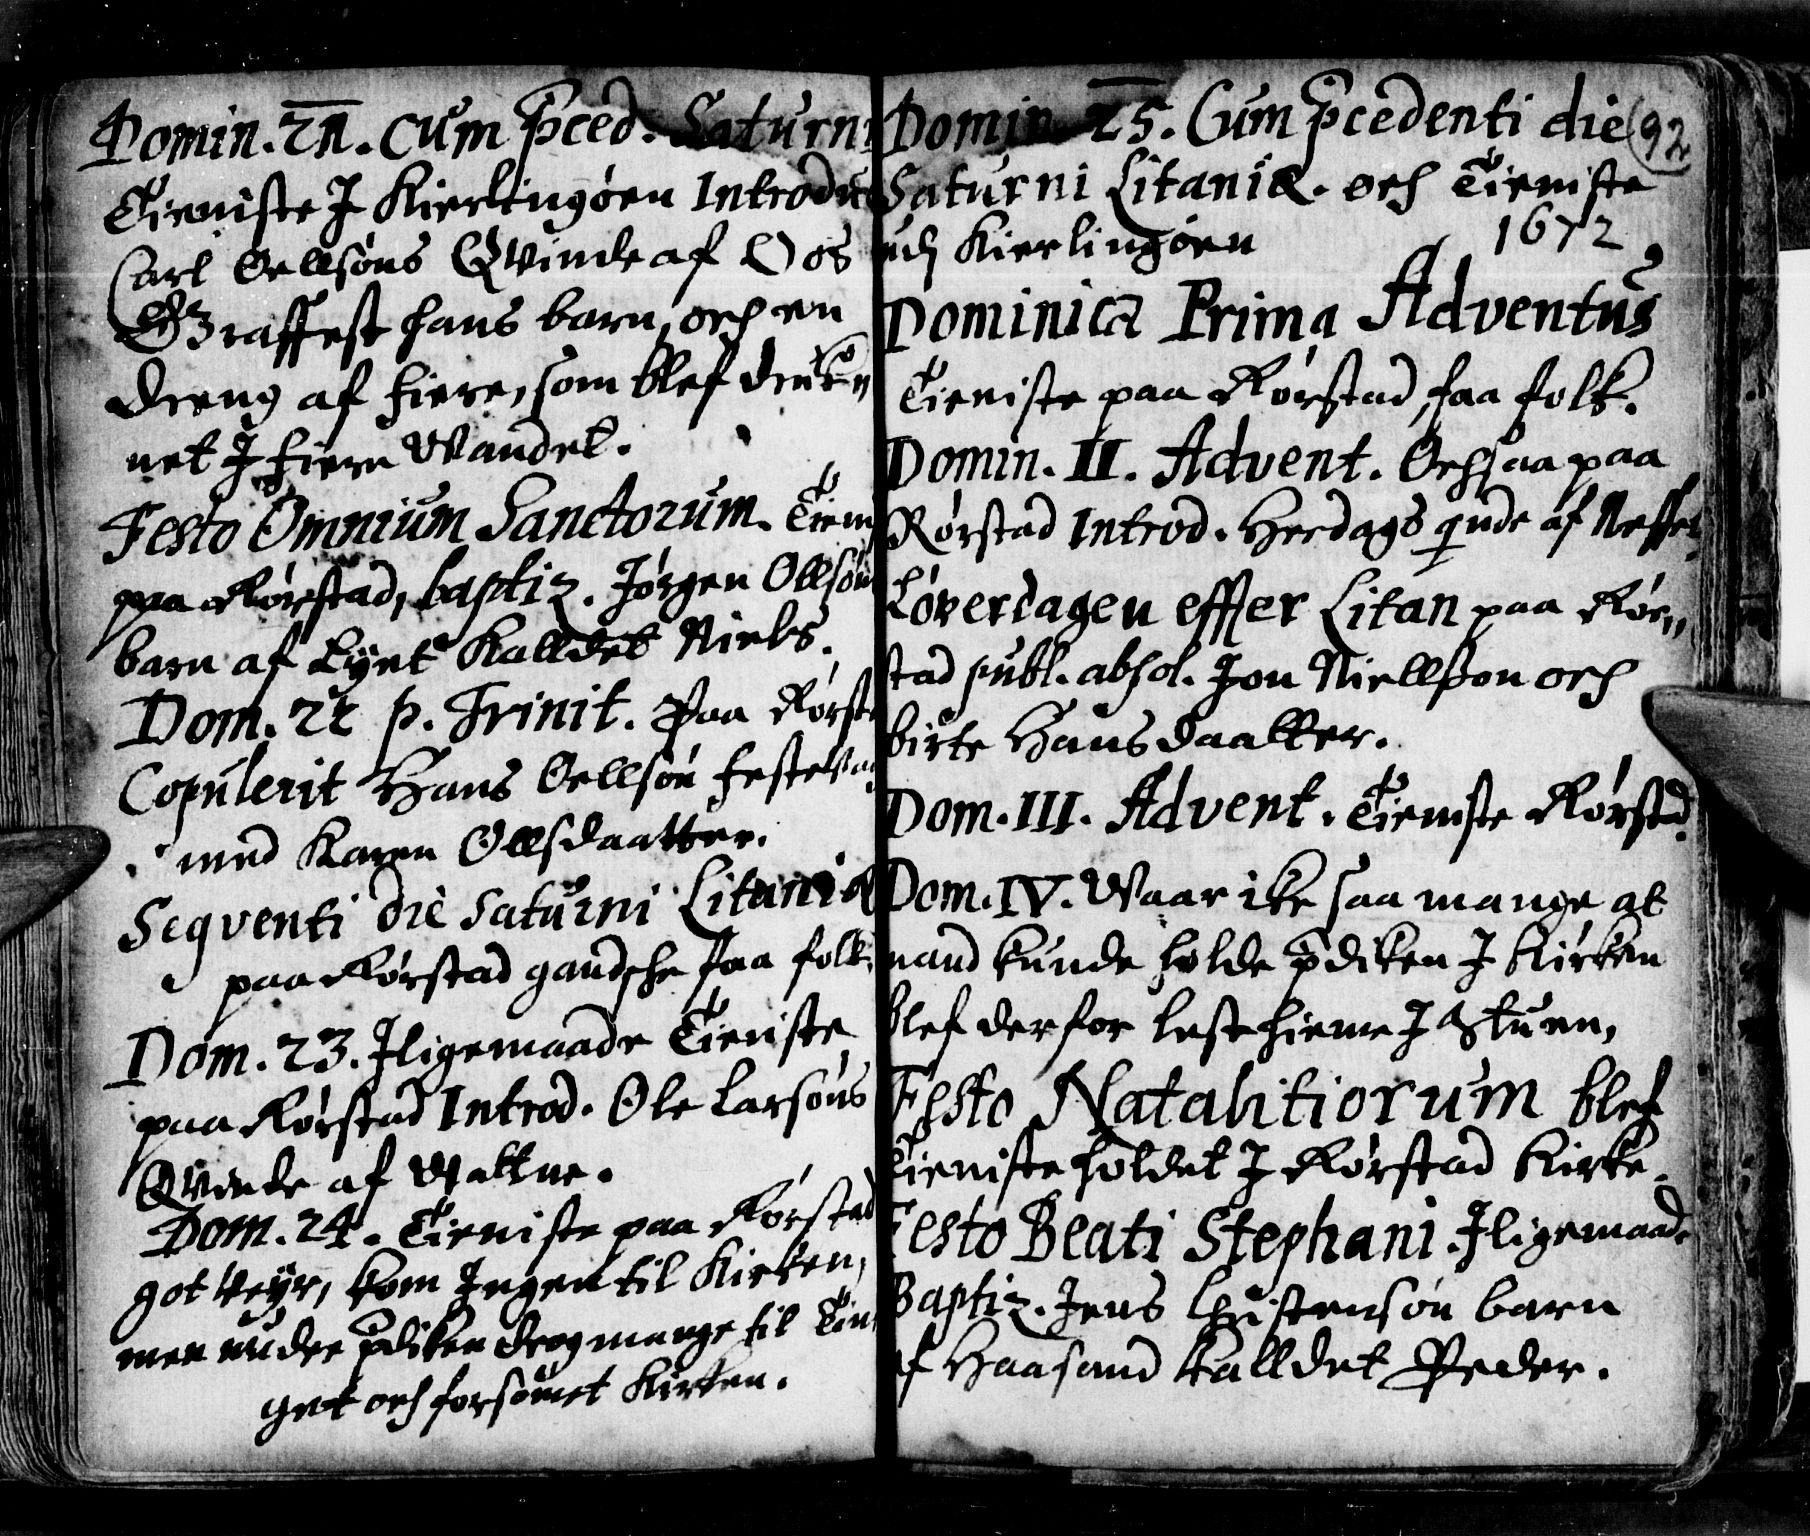 Domin. 21. cum p̄ced. Saturni
Tieniste J Kierlingøen Introdu
Carl Oellsøns Qvinde af Vos
Graffest hans barn, och en
dreng af fiere, som blef druk
net J fiere Vandet.
Festo Omnium Sanctorum. Tien
paa Rørstad, baptiz. Jørgen Ollsøn
barn af Lynt Kalldet Niels.
Dom. 22 p. Trinit. Paa Rørst
Copulerit Hans Oellsøn festev
med Karen Ollsdaatter.
Seqventi die Saturni Litaniæ
paa Rørstad gandsche faa folk.
Dom. 23. Jligemaade Tieniste
paa Rørstad Introd. Ole Larsøns
Qvinde af Valkne.
Dom. 24. Tieniste paa Rørstad
got veyr, kom Jngen til Kirken,
men under p̄diken drog mange til Tin
get och forsømet Kirken.
Domin. 25. Cum p̄cedenti die 92
Saturni Litaniæ. och Tieniste
udj Kierlingøen 1672
Dominica Prima Adventus
Tieniste paa Rørstad, faa folk.
Domin. II. Advent. Ochsaa paa
Rørstad Introd. Herdags qnde af
Løverdagen effter Litan paa Rør,,
stad publ. absol. Jon Niellßon och
birte Hansdaatter.
Dom. III. Advent. Tieniste Rørstad.
Dom. IV. Waar ike saa mange at
mand kunde holde p̄diken J Kirken
blef derfor lest hieme J Stuen,
Festo Natalitiorum blef
Tieniste holdet J Rørstad Kirke.
Festo Beati Stephani. Jligemaade
Baptiz. Jens Christensøn barn
af Haasand kalldet Peder.